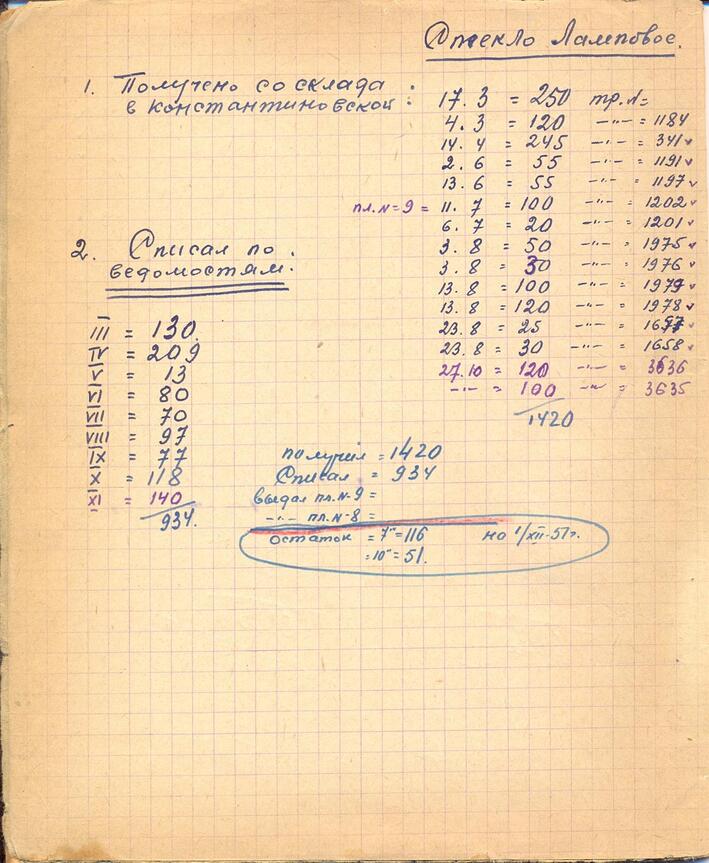 Стекло Ламповое.
1. Получено со склада
в константиновской:
17.3 = 250 тр.N=
4.3 = 120 -"- = 1184
14.4 = 245 -"- = 341 v
2.6 = 55 -"- = 1191 v
13.6 = 55 -"- = 1197 v
пл.N=9 = 11.7 = 100 -"- = 1202 v
6.7 = 20 -"- = 1201 v
3.8 = 50 -"- = 1975 v
3.8 = 30 -"- = 1976 v
13.8 = 100 -"- = 1979 v
13.8 = 120 -"- = 1978 v
23.8 = 25 -"- = 1657 v
23.8 = 30 -"- = 1658 v
27.10 = 120 -"- = 3636
-"- = 100 -"- = 3635
1420
2. Списал по
ведомостям.
III = 130
IV = 209
V = 13
VI = 80
VII = 70
VIII = 97
IX = 77
X = 118
XI = 140
934.
получил = 1420
Списал = 934
выдал пл.N-9 =
-"- пл.N-8 =
остаток = 7"=116 на 1/XII-51г.
=10"=51.